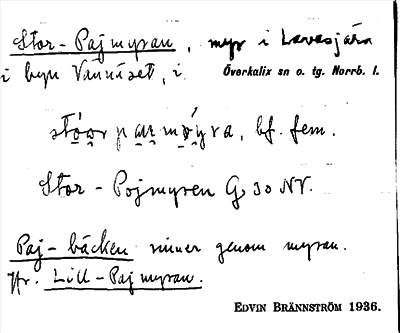 Stor-Pajmyran, myr i Lavasjärn
i byn Vännäset, i Överkalix sn o. tg. Norrb. l.
stó̰o̰r pa̰r̰mǿ̰yra, bf. fem.
Stor-Pojmyren G 30 NV.
Paj-bäcken rinner genom myran.
Jfr. Lill-Pajmyran.
EDVIN BRÄNNSTRÖM 1936.